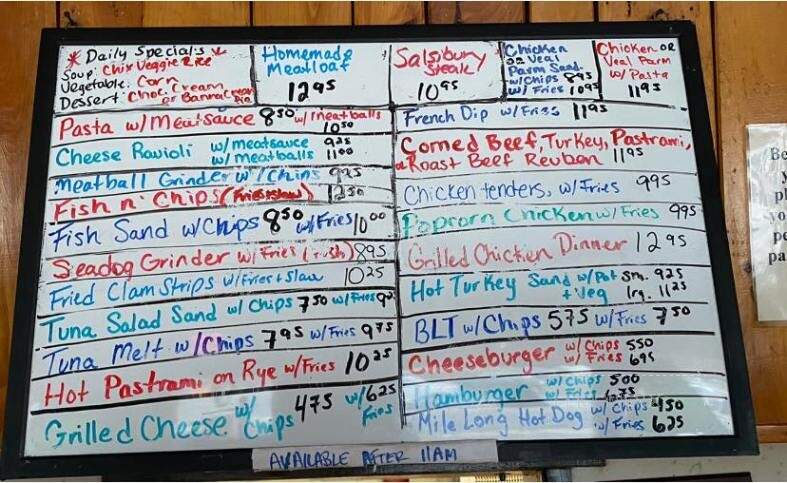 * Daily Specials *
Soup: Chix Veggie Rice
Vegetable: Corn
Dessert: Choc. Cream
or Banana Cream
Pie
Homemade
Meatloaf
12 95
Salsibury
Steak
10 95
Chicken
or Veal
Parm Sand.
w/Chips 8 95
w/ Fries 10 95
Chicken or
Veal Parm
w/ Pasta
11 95
Pasta w/Meatsauce 8 50 w/meatballs
10 50
Cheese Ravioli w/meatsauce 9 25
w/meatballs 11 00
Meatball Grinder w/Chips 9 25
Fish n' Chips (Fries+slaw) 12 50
Fish Sand w/Chips 8 50 w/Fries 10 00
Seadog Grinder w/Fries 8 95
Fried Clam Strips w/Fries+Slaw 10 25
Tuna Salad Sand w/ Chips 7 50 w/Fries
Tuna Melt w/Chips 7 95 w/Fries 9 75
Hot Pastrami on Rye w/Fries 10 25
Grilled Cheese w/ Chips 4 75 w/ Fries 6 25
French Dip w/Fries 11 95
Corned Beef, Turkey, Pastrami,
or Roast Beef Reuben 11 95
Chicken tenders, w/Fries 9 95
Popcorn Chicken w/ Fries 9 95
Grilled Chicken Dinner 12 95
Hot Turkey Sand w/Pot Sm. 9 25
+ Veg lrg. 11 25
BLT w/Chips 5 75 w/Fries 7 50
Cheeseburger w/ Chips 5 50
w/ Fries 6 95
Hamburger w/ Chips 5 00
w/ Fries
Mile Long Hot Dog w/ Chips 4 50
w/ Fries 6 25
AVAILABLE AFTER 11AM